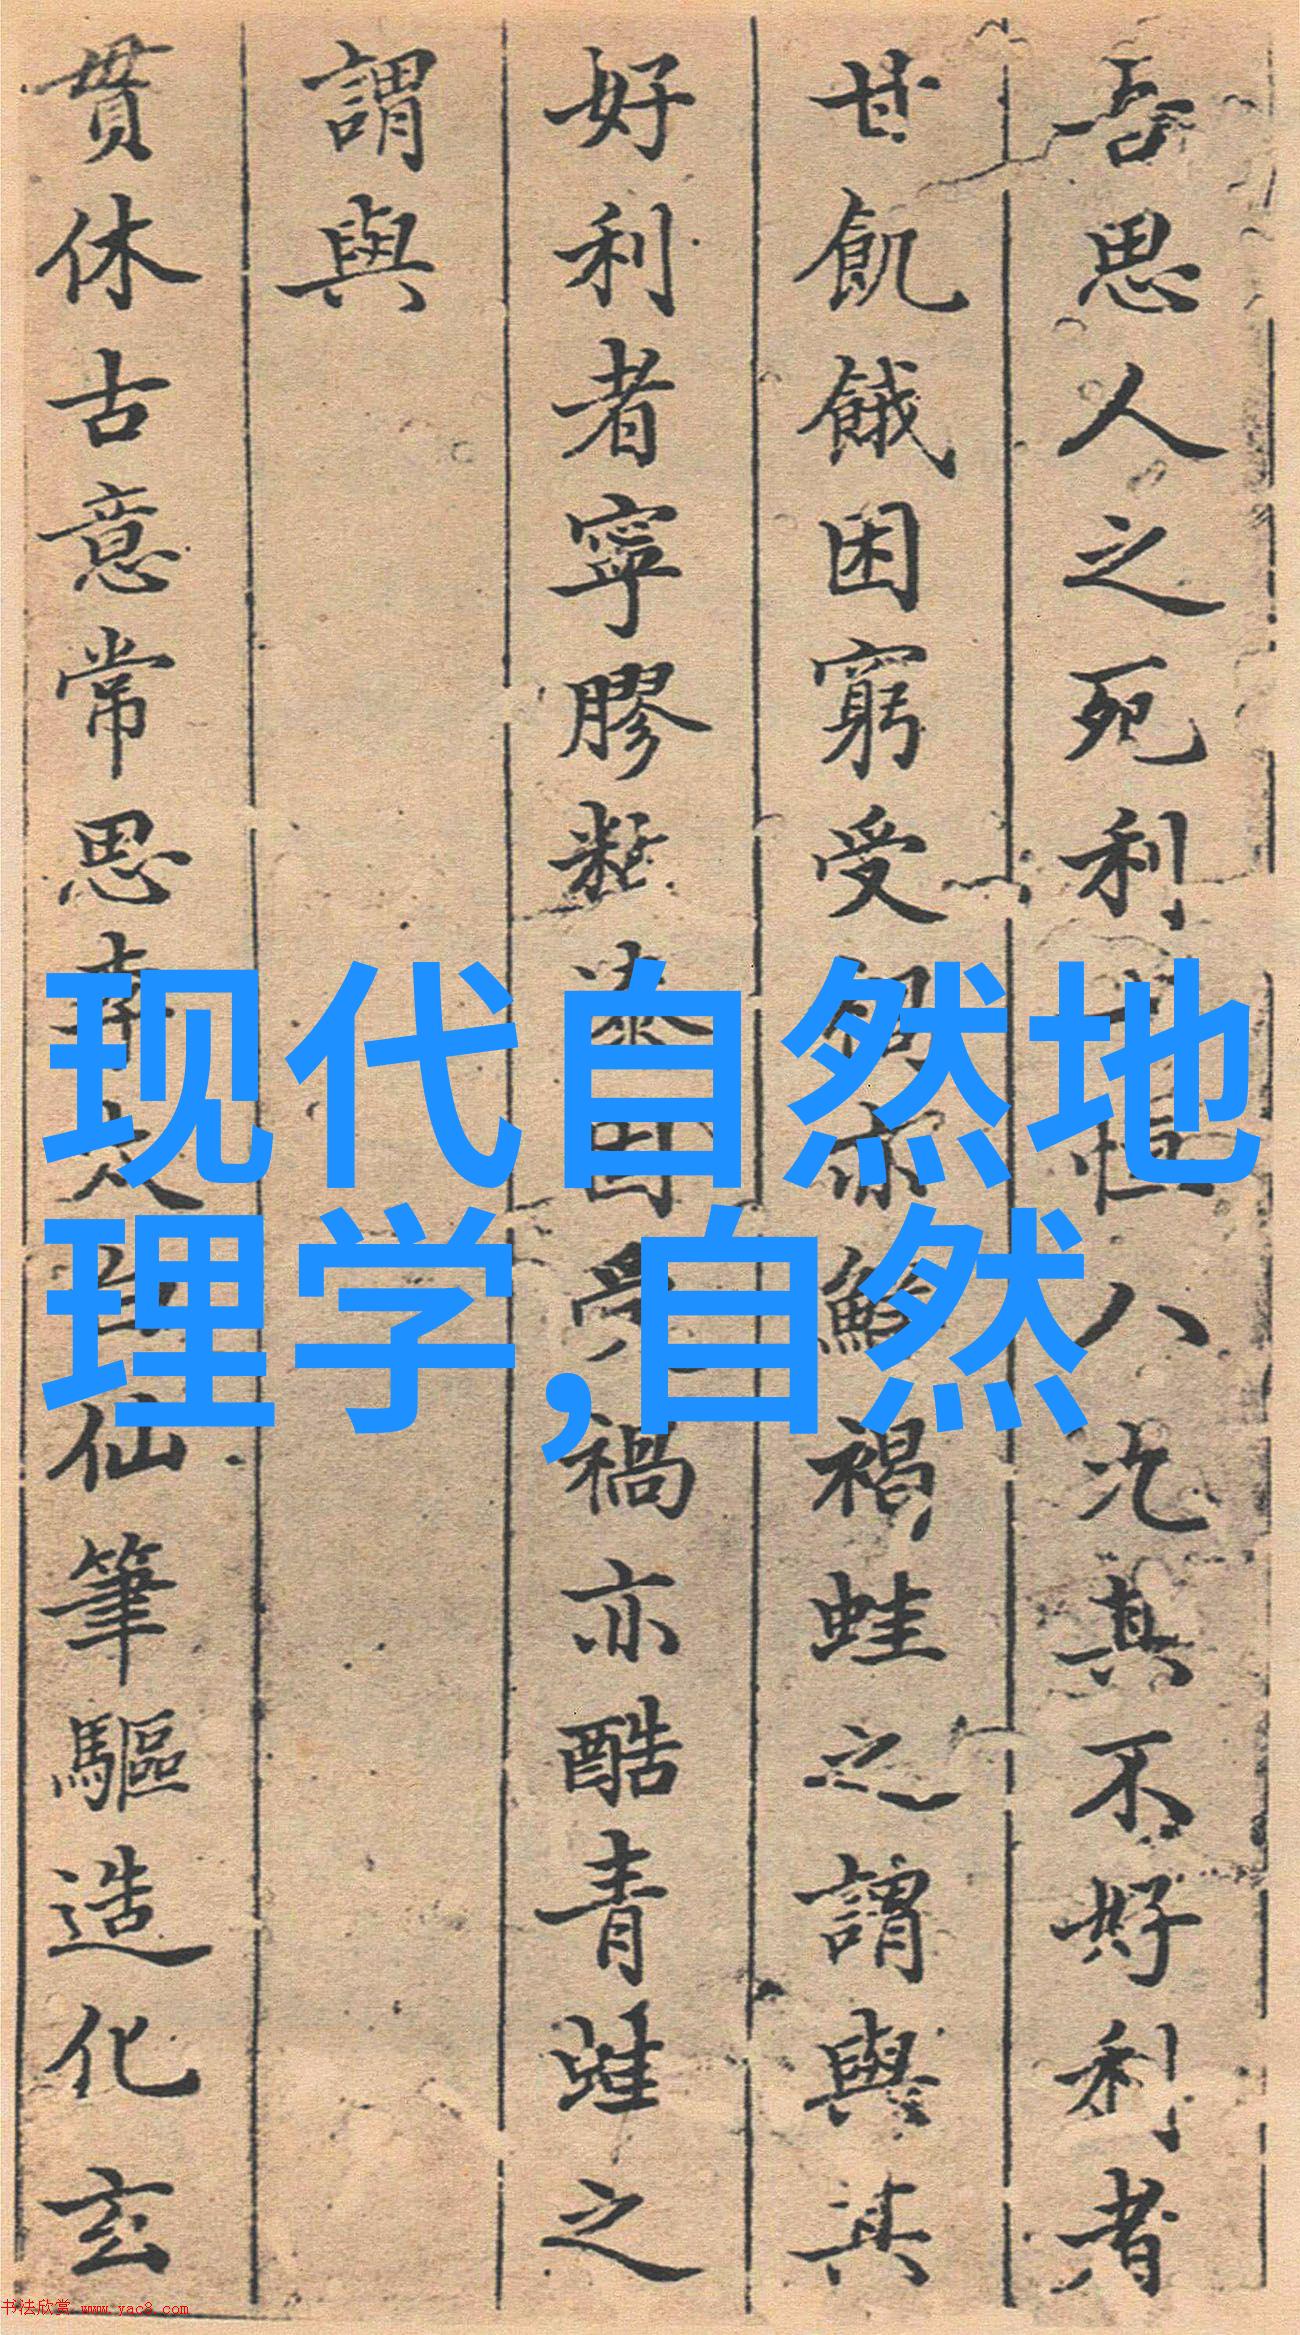 吾思人之死利
八况其不好利者
甘飢餓困窮受
褐蛙之謂與其
好利者寧膠
禍亦酷青蛙之
謂與
貫休古意常思
仙筆驅造化玄
现代自然地
理学,自然
书法欣赏 www.yac8.com